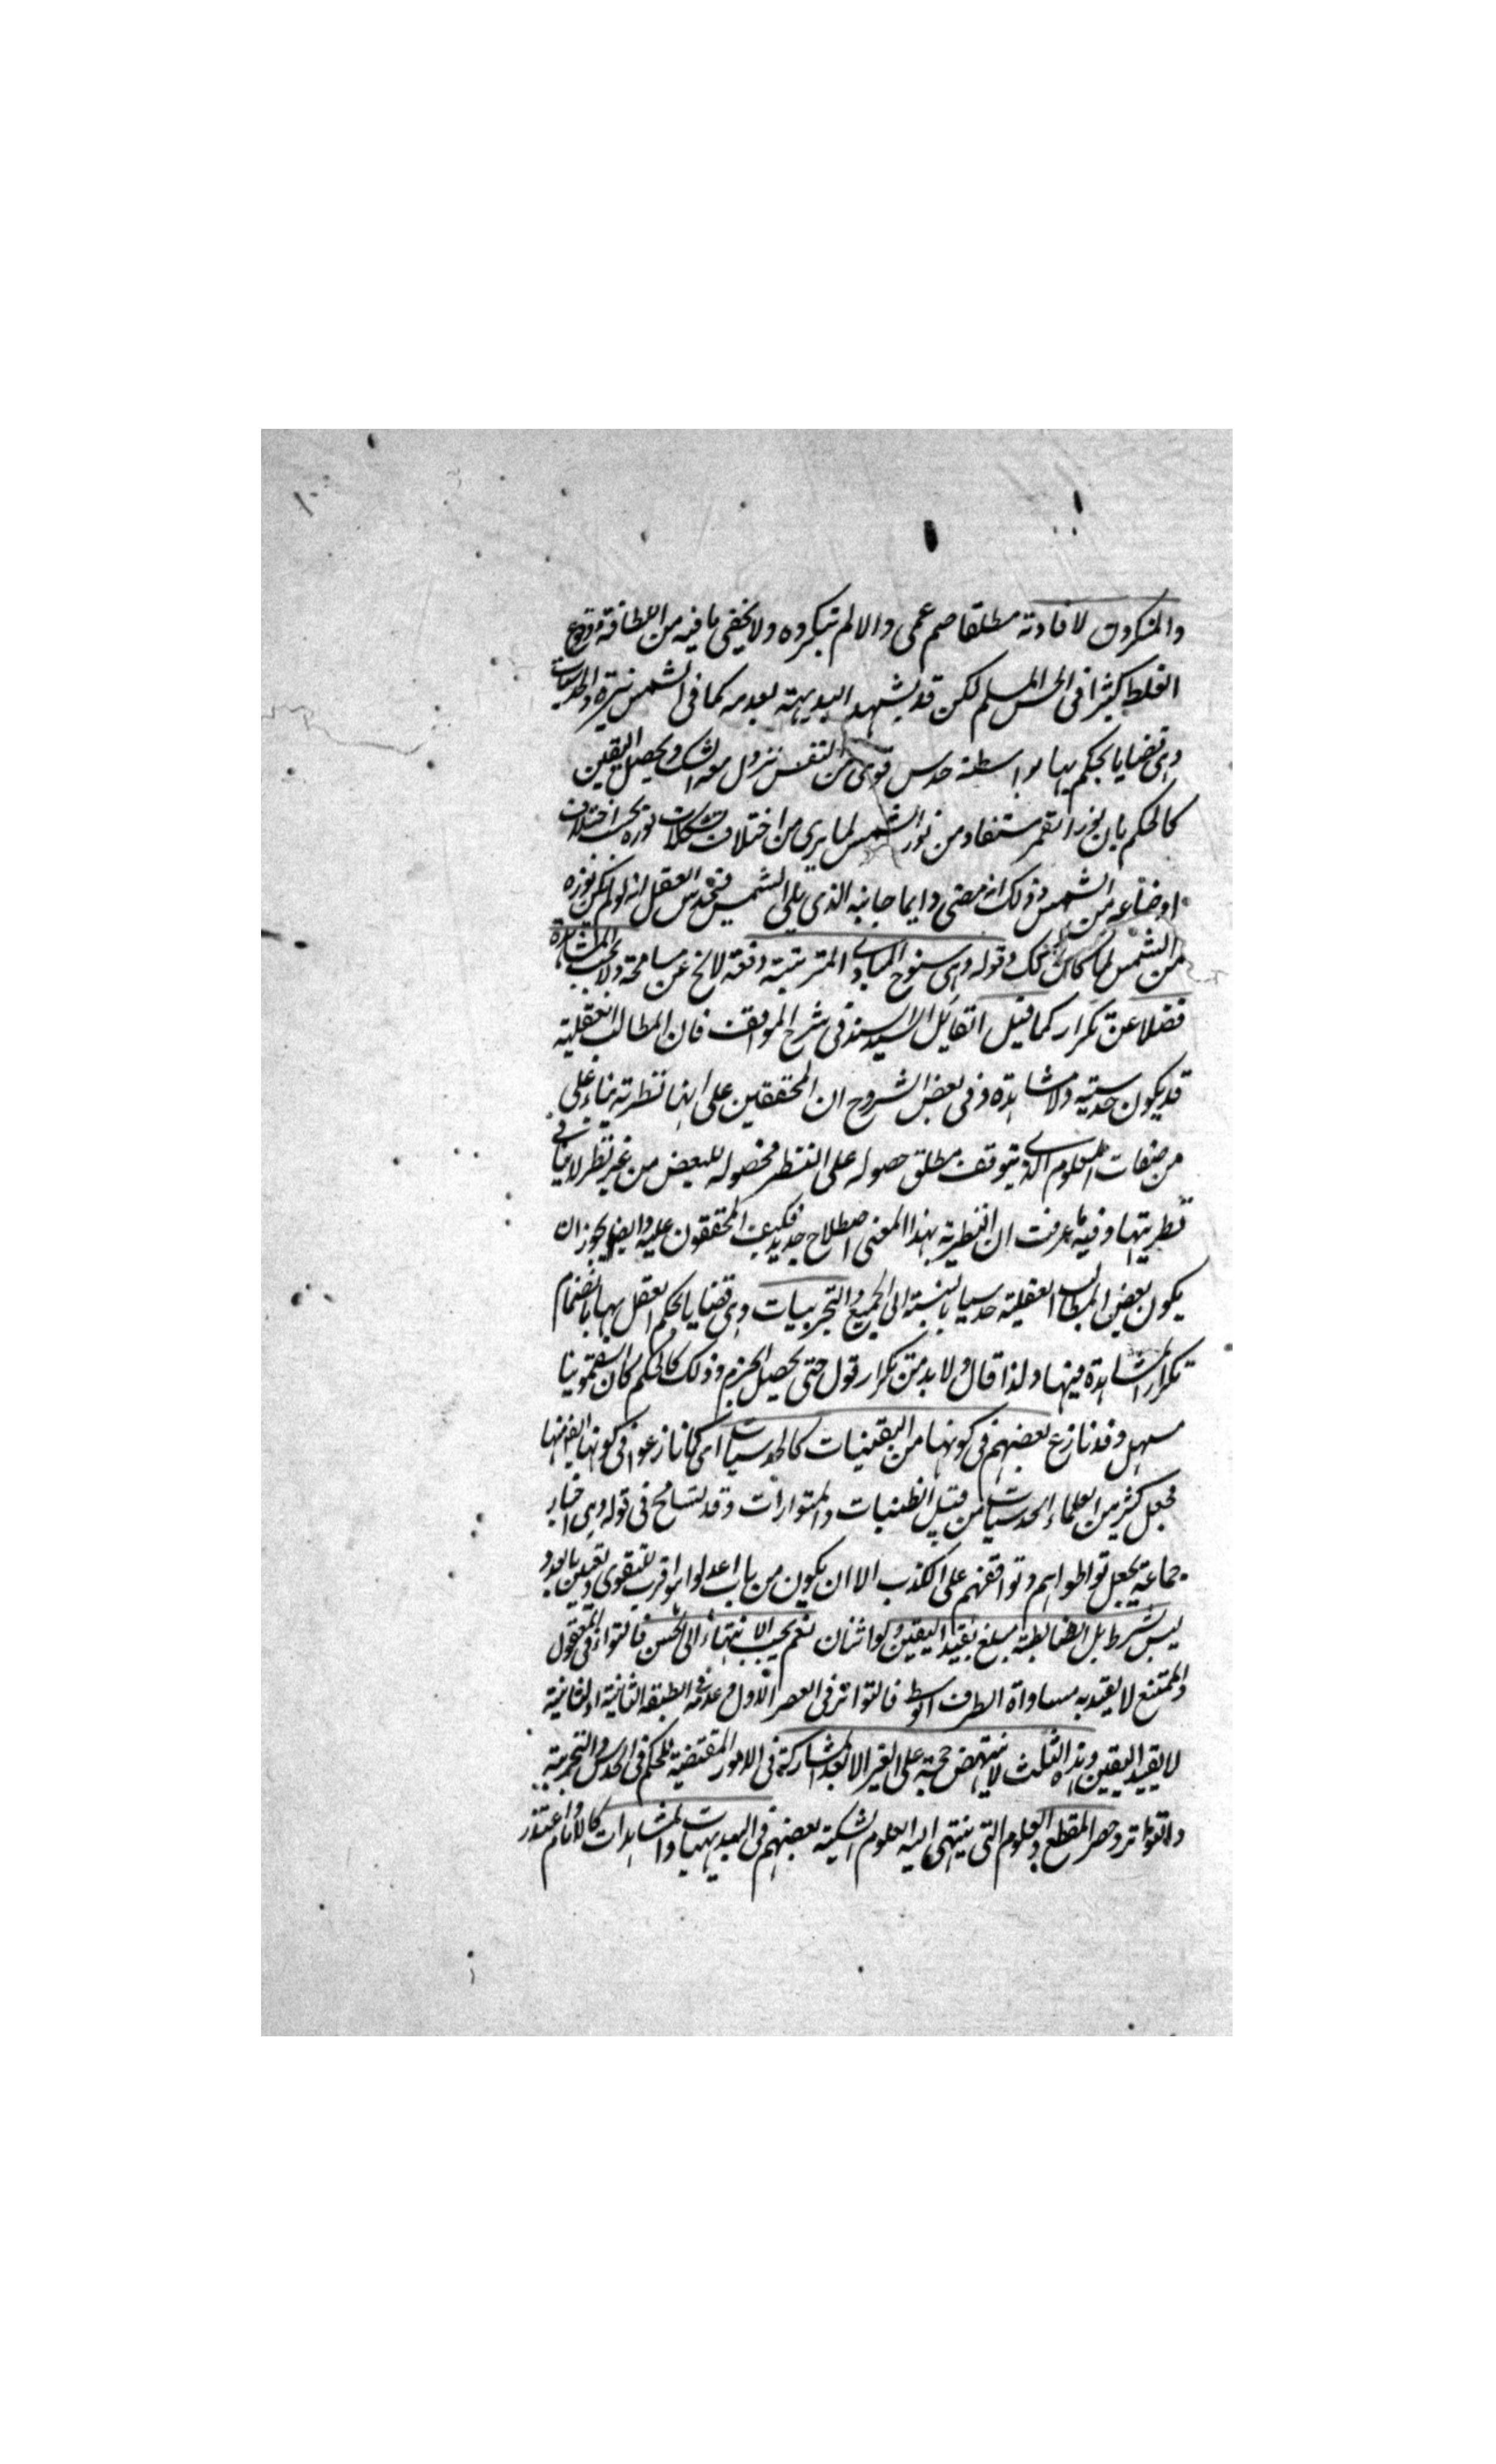 والمنكرون لافادته مطلقا صم عمى والا لم تنكروه ولا يخفى ما فيه من اللطافة ووقوع
الغلط كثيرا فى الحس المسلم لكن قد يشهد البديهة بعدمه كما فى الشمس نيرة والحدسيات
وهى قضايا يحكم بها بواسطة حدس قوى من النفس يزول معه الشك ويحصل اليقين
كالحكم بان نور القمر مستفاد من نور الشمس لما يرى من اختلاف تشكلات نوره بحسب اختلاف
اوضاعه من الشمس وذلك انه مضى دايما جانبه الذى يلى الشمس فيحدس العقل انه لو لم يكن نوره
من الشمس لما كان كذلك وقوله وهى سنوح المبادى المترتبة دفعة لا يخ عن مسامحة ولا يجب المشاهدة
فضلا عن تكرار كما قيل القايل السيد السند فى شرح المواقف فان المطالب العقلية
قد يكون حدسية ولا مشاهدة وفى بعض الشروح ان المحققين على انها نظرية بناء على
من صفات المعلوم الذى يتوقف مطلق حصوله على النظر فحصوله للبعض من غير نظر لا ينافى
نظريتها وفيه ما عرفت ان النظرية بهذا المعنى اصطلاح جديد فكيف المحققون عليه وايضا يجوز ان
يكون بعض المطالب العقلية حدسيا بالنسبة الى الجميع والتجربيات وهى قضايا يحكم العقل بها بانضمام
تكرار المشاهدة فيها ولذا قال ولا بد من تكرار قول حتى يحصل الجزم وذلك كالحكم كان السقمونيا
مسهل وقد نازع بعضهم فى كونها من اليقينيات كالحدسيات اى كما نازعوا فى كونها ايضا منها
فجعل كثير من العلماء الحدسيات من قبيل الظنيات والمتواترات وقد تسامح فى قوله وهى اخبار
جماعة يحيل تواطؤاهم وتوافقهم على الكذب الا ان يكون من باب اعدلوا هو اقرب للتقوى وتعيين العدد
ليس بشرط بل الضابطة مبلغ يفيد اليقين ولو اثنان نعم يجب الانتهاء الى الحس فالتواتر فى المعقول
والممتنع لا يفيد به مساواة الطرف الوسط فالتواتر فى العصر الاول مع عدمه فى الطبقة الثانية او الثانية
لا يفيد اليقين وهذه الثلث لا ينتهض حجة على الغير الا بعد المشاركة فى الامور المقتضية للحكم فى الحدس والتجربة
والتواتر وحصر المقطع والعلوم التى ينتهى اليه العلوم الشكية بعضهم فى البديهيات والمشاهدات كالامام واعتذر